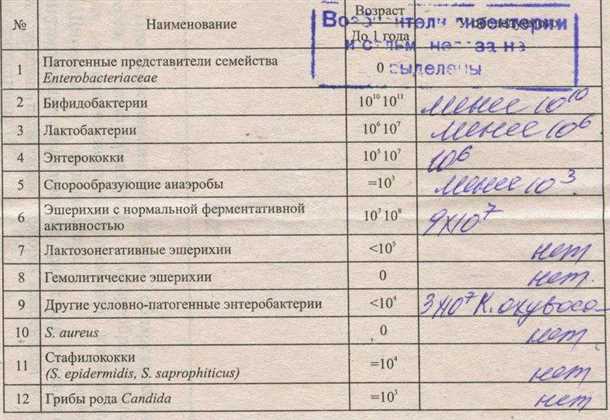 № Наименование Возраст
До 1 года
Возбудители дизентерии
и сальм-неллеза не
выделены
1 Патогенные представители семейства 0
Enterobacteriaceae
2 Бифидобактерии 10¹⁰ 10¹¹ менее 10¹⁰
3 Лактобактерии 10⁶ 10⁷ менее 10⁶
4 Энтерококки 10⁵ 10⁷ 10⁶
5 Спорообразующие анаэробы =10³ менее 10³
6 Эшерихии с нормальной ферментативной 10⁷ 10⁸ 9х10⁷
активностью
7 Лактозонегативные эшерихии <10⁵ нет
8 Гемолитические эшерихии 0 нет
9 Другие условно-патогенные энтеробактерии <10⁴ 3х10⁷ K.
10 S. aureus 0 нет
11 Стафилококки =10⁴ нет
(S. epidermidis, S. saprophiticus)
12 Грибы рода Candida =10³ нет